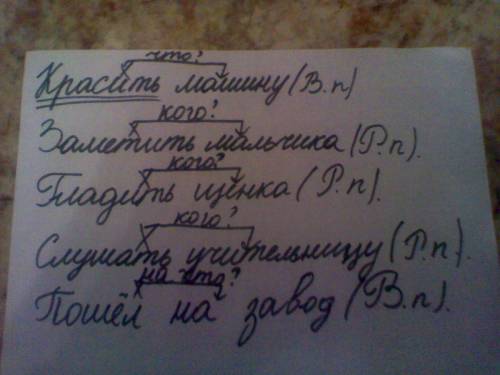 что?
Красить машину (В.п)
кого?
Заметить мальчика (Р.п).
кого?
Гладить щенка (Р.п).
кого?
Слушать учительницу (Р.п).
на что?
Пошёл на завод (В.п).